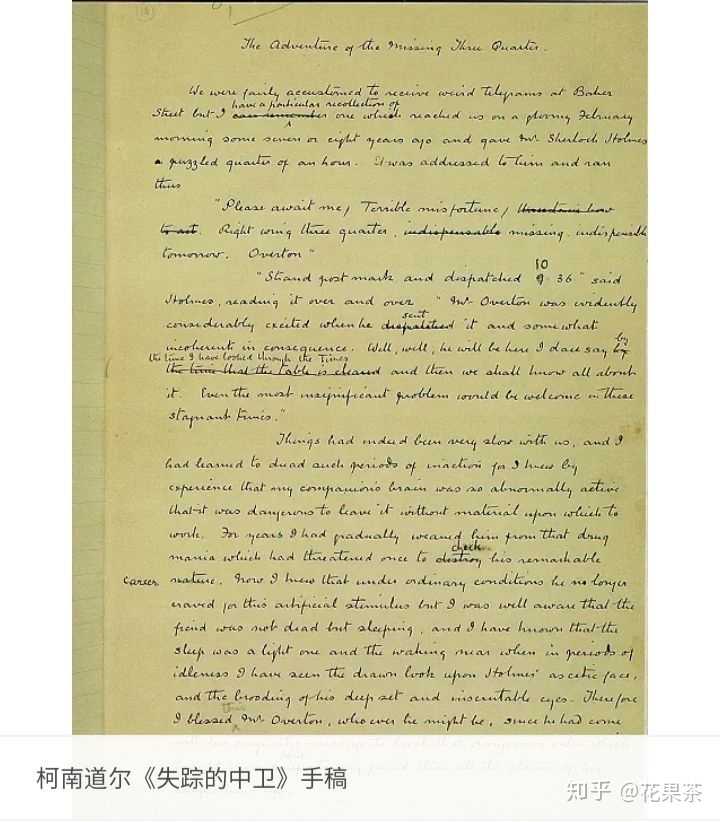 The Adventure of the Missing Three Quarter.
We were fairly accustomed to receive weird telegrams at Baker
have a particular recollection of
Street but I can remember one which reached us on a gloomy February
morning some seven or eight years ago and gave Mr Sherlock Holmes
a puzzled quarter of an hour. It was addressed to him and ran
thus
"Please await me, Terrible misfortune,
to act. Right wing three quarter, indispensable missing. indispensable
tomorrow. Overton"
10
"Strand post mark and dispatched 9.36" said
Holmes, reading it over and over. "Mr Overton was evidently
sent
considerably excited when he despatched it and somewhat
incoherent in consequence. Well, well, he will be here I dare say by
the time I have looked through the Times
the time that the table is cleared and then we shall know all about
it. Even the most insignificant problem would be welcome in these
stagnant times."
Things had indeed been very slow with us, and I
had learned to dread such periods of inaction for I knew by
experience that my companion's brain was so abnormally active
that it was dangerous to leave it without material upon which to
work. For years I had gradually weaned him from that drug
check
mania which had threatened once to destroy his remarkable
career nature. Now I knew that under ordinary conditions he no longer
craved for this artificial stimulus but I was well aware that the
fiend was not dead but sleeping, and I have known that the
sleep was a light one and the waking near when in periods of
idleness I have seen the drawn look upon Holmes' ascetic face,
and the brooding of his deep set and inscrutable eyes. Therefore
this
I blessed Mr Overton, who ever he might be, since he had come
柯南道尔《失踪的中卫》手稿
知乎 @花果茶